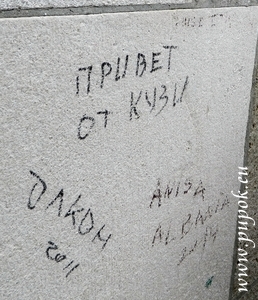 ПРИВЕТ
ОТ КУЗИ
ДЛКОН
2011
ANISA
ALBANIA
2014
www.pupyok.ru